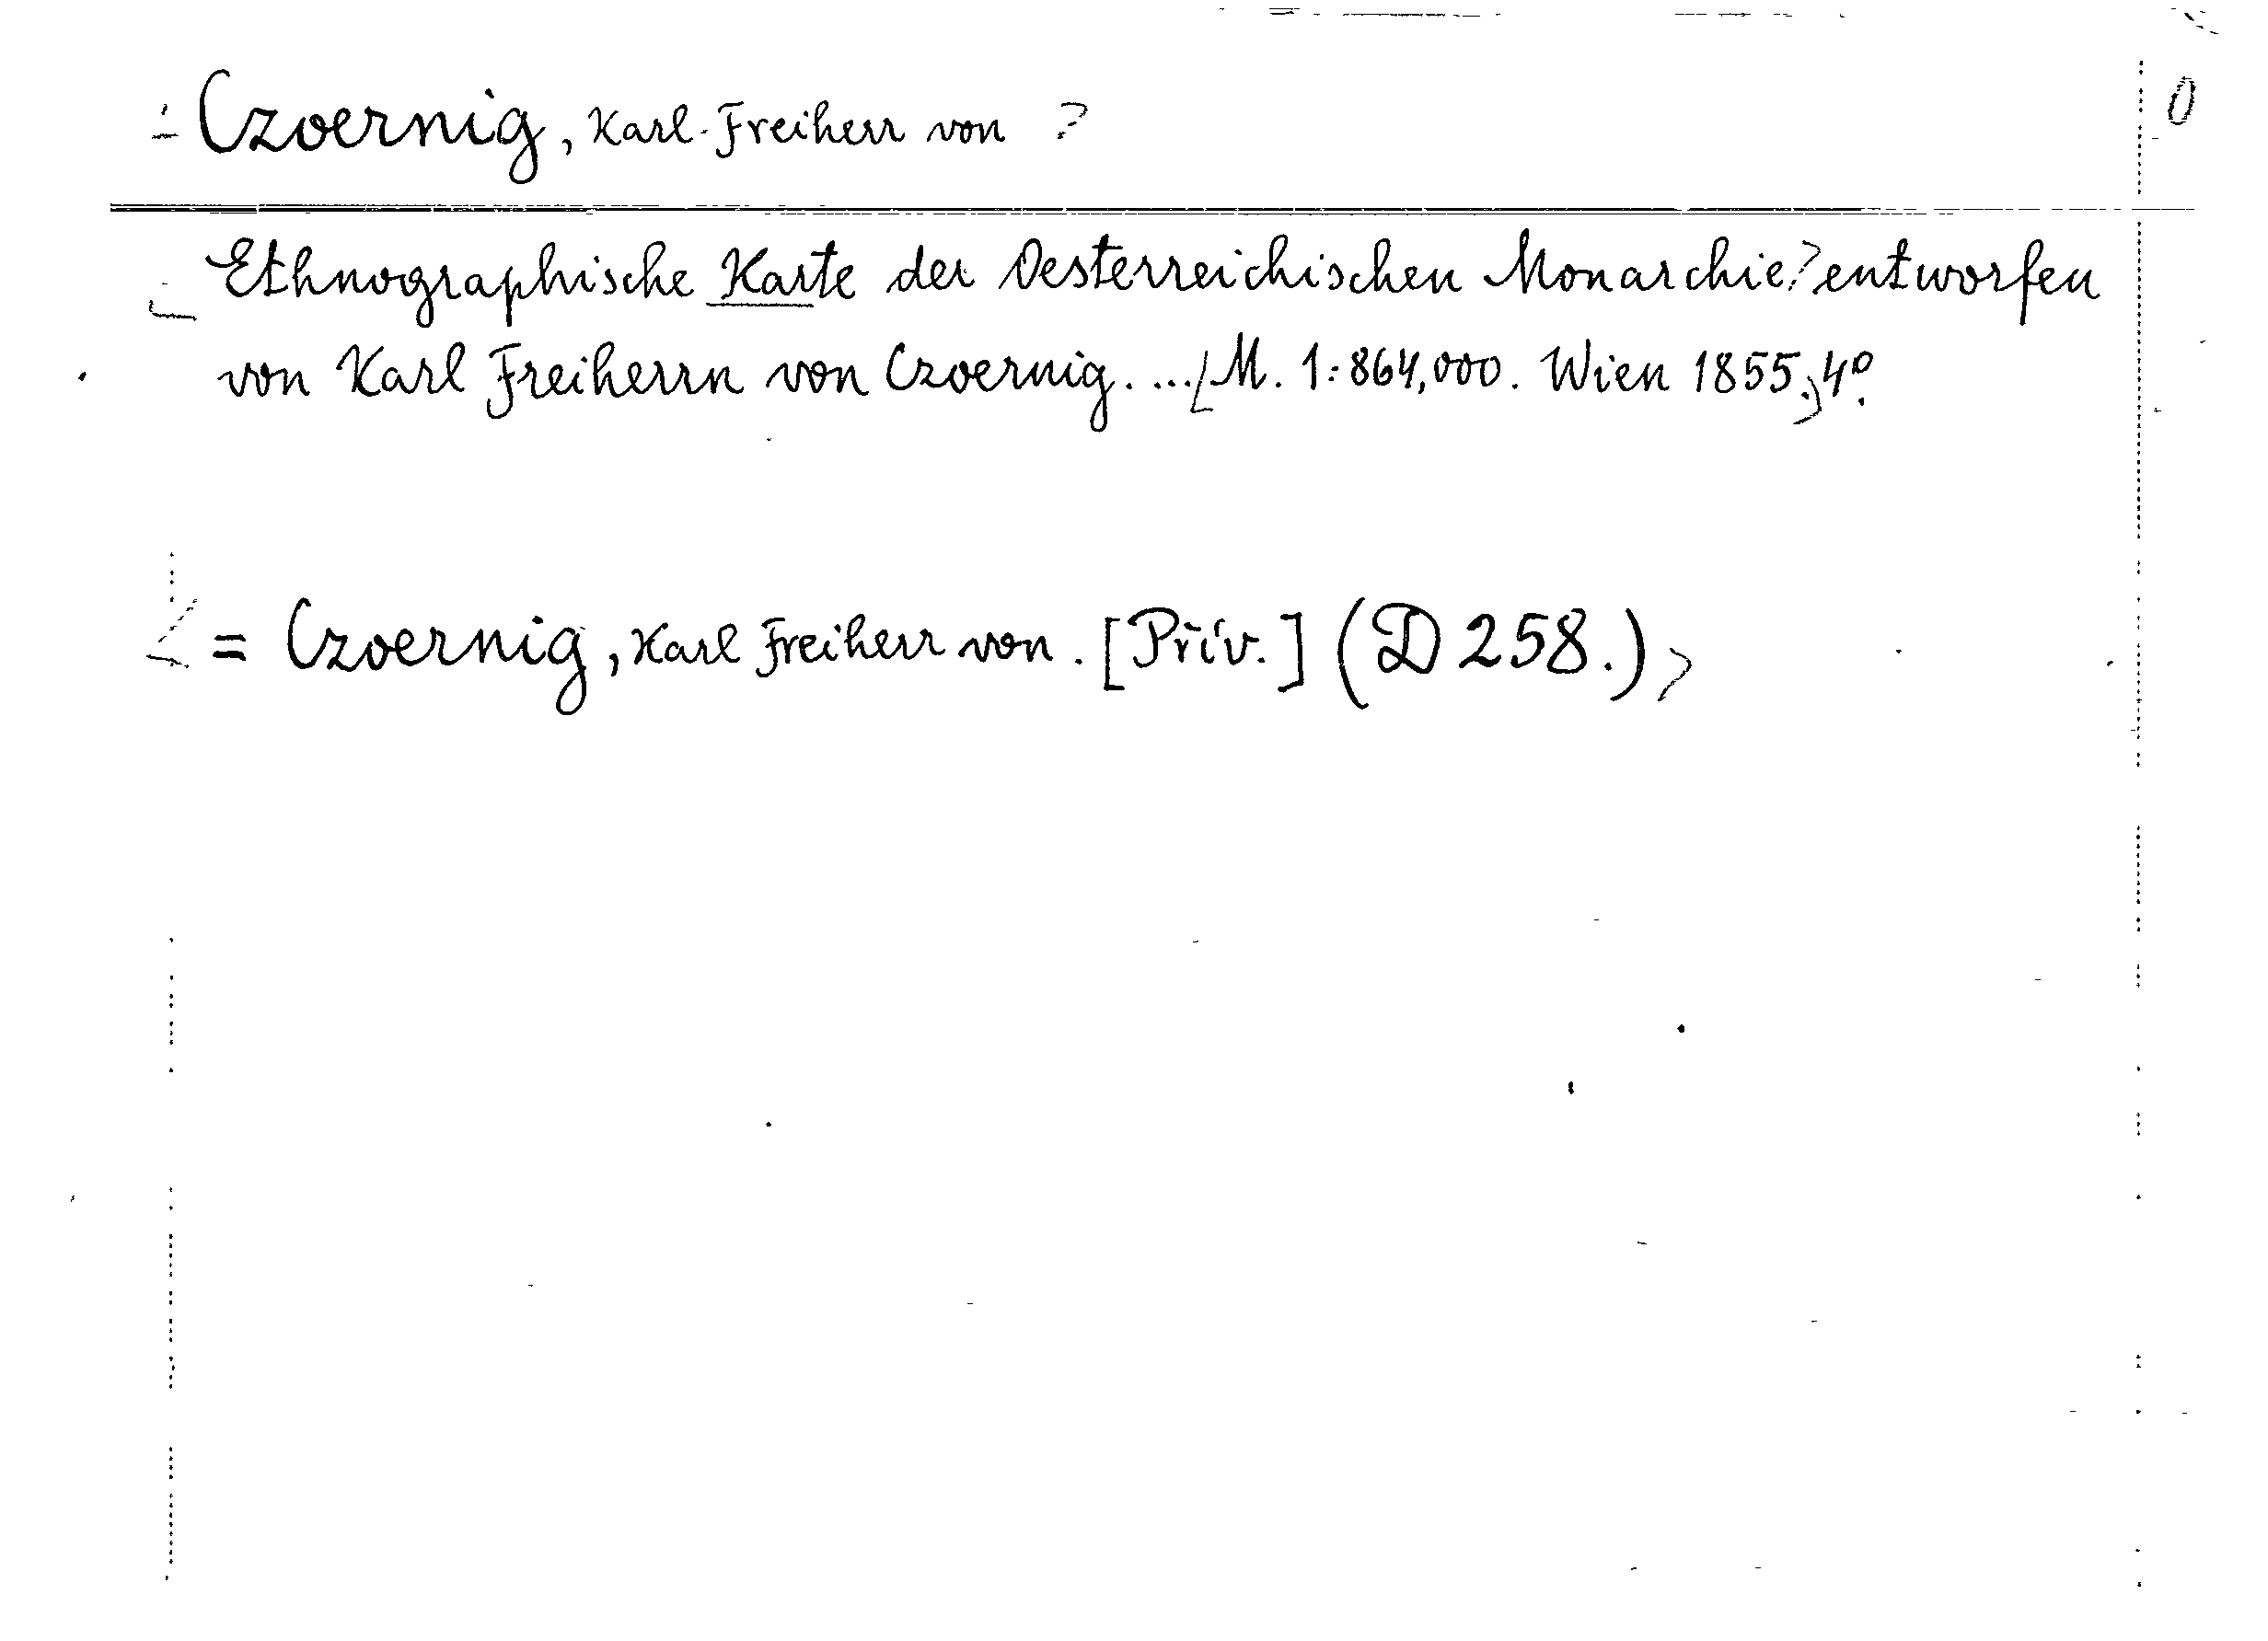 Czoernig, Karl Freiherr von ? 0
Ethnographische Karte der Oesterreichischen Monarchie? entworfen
von Karl Freiherrn von Czoernig. ... [M. 1:864,000. Wien 1855.] 4°.
< = Czoernig, Karl Freiherr von. [Priv.] (D 258.) >